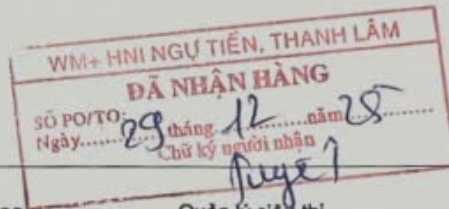 WM+ HNI NGỰ TIỀN, THANH LÂM
ĐÃ NHẬN HÀNG
SỐ PO/TO:
Ngày.......29 tháng..12..........năm 25..........
Chữ ký người nhận